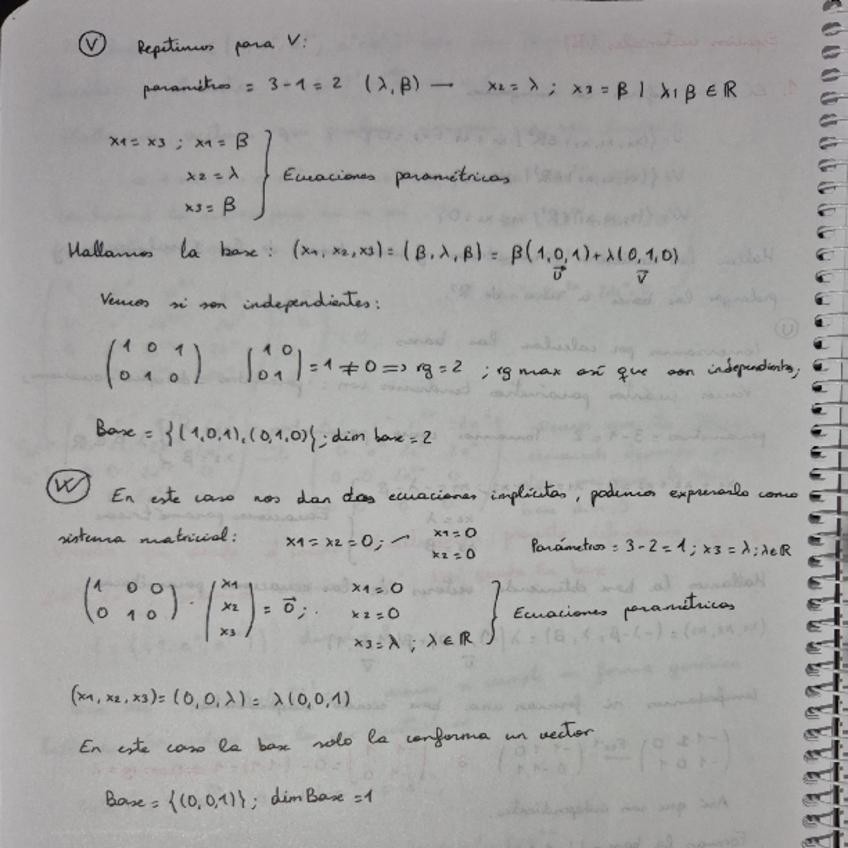 V Repetimos para V:
parámetros = 3-1 = 2 (λ, β) → x2 = λ ; x3 = β | λ, β ∈ ℝ
x1 = x3 ; x1 = β
x2 = λ } Ecuaciones paramétricas
x3 = β
Hallamos la base: (x1, x2, x3) = (β, λ, β) = β(1,0,1) + λ(0,1,0)
U⃗ V⃗
Vemos si son independientes:
(1 0 1) |1 0|
(0 1 0) |0 1| = 1 ≠ 0 => rg = 2 ; rg max así que son independientes;
Base = {(1,0,1), (0,1,0)}; dim base = 2
W En este caso nos dan dos ecuaciones implícitas, podemos expresarlo como
sistema matricial: x1 = x2 = 0; x1 = 0 Parámetros = 3-2 = 1 ; x3 = λ ; λ ∈ ℝ
x2 = 0
(1 0 0) · (x1) x1 = 0
(0 1 0) (x2) = 0⃗ ; x2 = 0 } Ecuaciones paramétricas
(x3) x3 = λ ; λ ∈ ℝ
(x1, x2, x3) = (0, 0, λ) = λ(0,0,1)
En este caso la base solo la conforma un vector
Base = {(0,0,1)}; dim Base = 1